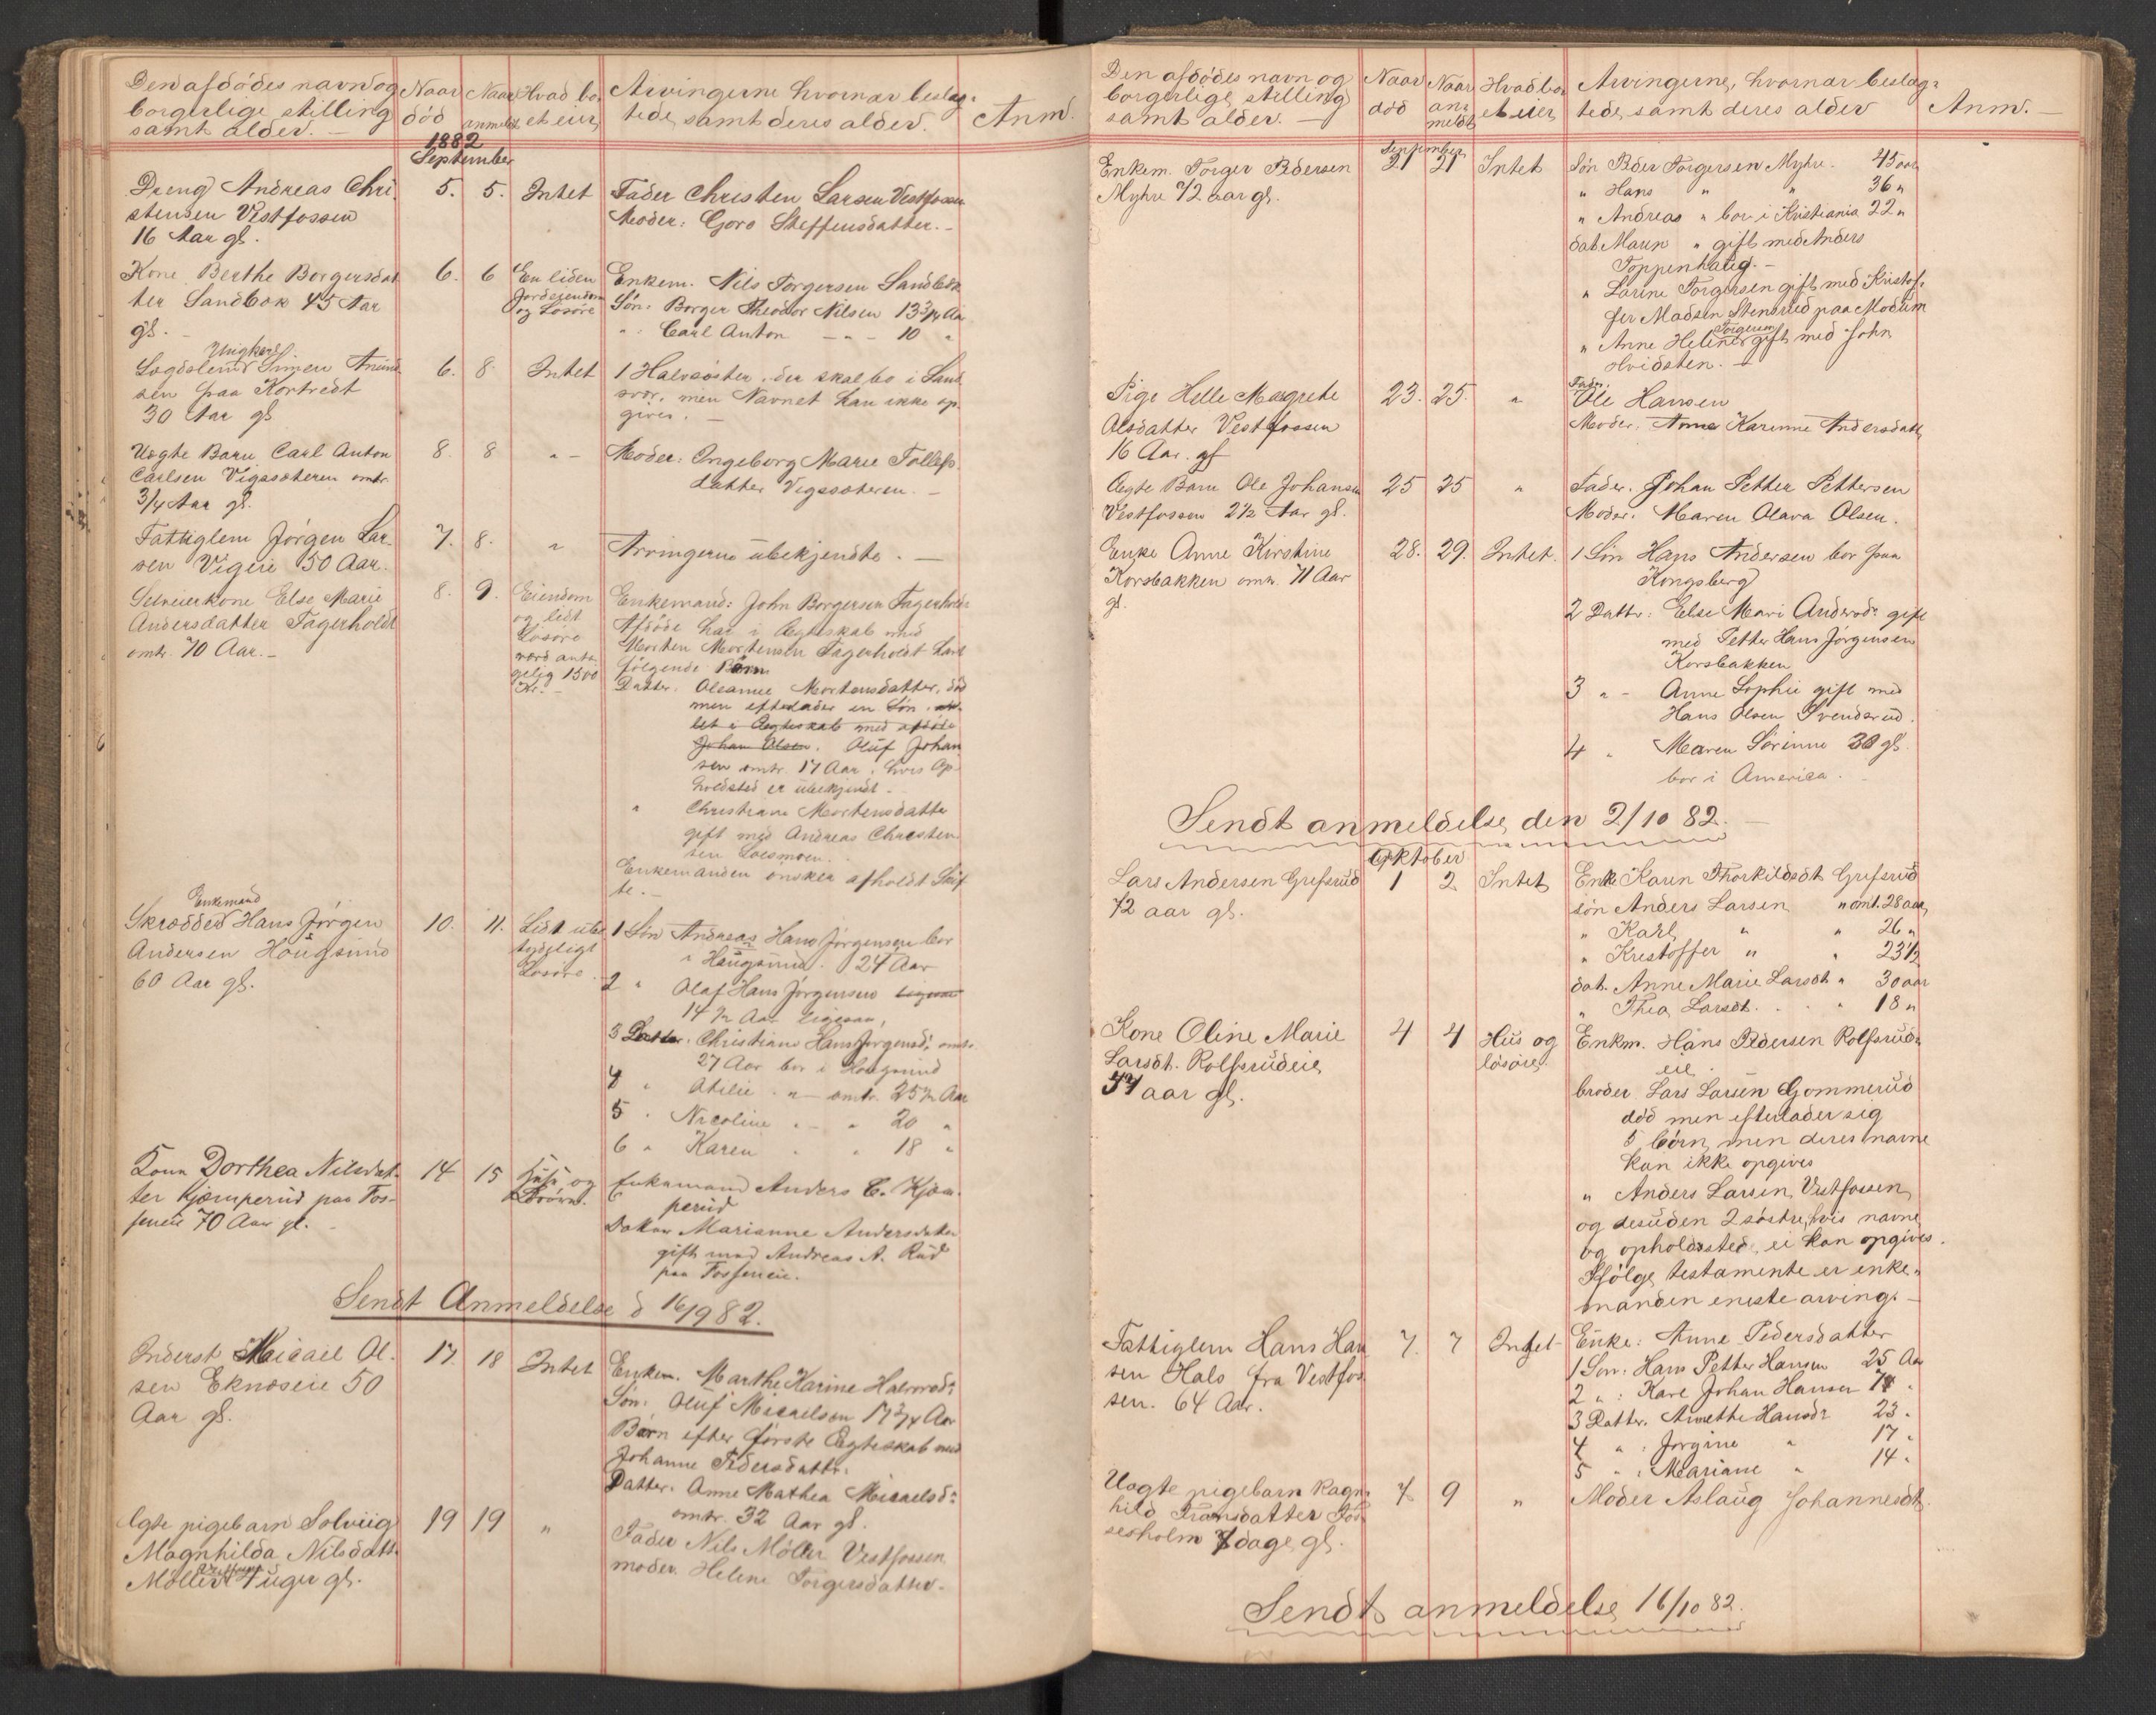 Den afdödes navn og
borgerlige stilling
samt alder. —
Naar
död
Naar
anmeldt
Hvad bo-
et eier
Arvingerne hvornær beslæg-
tede, samt deres alder.
Anm.
1882
September
Dreng Andreas Chri-
stensen Vestfossen
16 Aar gl.
5. 5. Intet
Fader Christen Larsen Vestfossen
Moder: Goro Steffensdatter. —
Kone Berthe Borgersdat
ter Sandbæk 45 Aar
gl. —
6. 6
En liden
Jordeiendom
og Lösöre
Enkem. Nils Torgersen Sandbæk
Sön: Borger Theodor Nilsen 13 3/4 Aar
" : Carl Anton — " — 10 "
Ungkarl
Lægdslem Simen Amund
sen paa Kortvedt
30 Aar gl
6. 8. Intet
1 Halvsöster, der skal bo i Sand
svær, men Navnet kan ikke op-
gives. —
Uægte Barn Carl Anton
Carlsen Vigesæteren omtr.
3/4 Aar gl.
8. 8 " —
Moder: Ingeborg Marie Tollefs
datter Vegesæteren. —
Fattiglem Jörgen Lar-
sen Vigeie 50 Aar.
7. 8. "
Arvingerne ubekjendte. —
Selveierkone Else Marie
Andersdatter Fagerholdt
omtr. 70 Aar. —
8. 9.
Eiendom
og lidt
Lösöre
værd anta
gelig 1500
Kr. —
Enkemand: John Borgersen Fagerholdt
Afdöde har i Ægteskab med
Morten Mortensen Fagerholdt havt
fölgende Börn
Datter. Oleanne Mortensdatter, död
men efterlader en Sön
let i Ægteskab med afdöde
Johan Olsen. Oluf Johan
sen omtr. 17 Aar, hvis Op-
holdsted er ubekjendt.
" Christiane Mortensdatter
gift med Andreas Christen
sen Loesmoen.
Enkemanden önsker afholdt Skif
te. —
Enkemand
Skrædder Hans Jörgen
Andersen Hougsund
60 Aar gl.
10. 11.
Lidt ube
tydeligt
Lösöre.
1 Sön Andreas Hans Jörgensen bor
i Haugsund. 24 Aar
2 " Olaf Hans Jörgensen
14 1/2 Aar ligesaa,
3 Datter. Christiane HansJörgensd: omtr.
27 Aar bor i Hougsund
4 " Otilie . " — omtr. 25 1/2 Aar
5 " Nicoline " — " 20 "
6 " Karen " " 18 "
Kone Dorthea Nilsdat-
ter Kjæmperud paa Fos-
seneie 70 Aar gl.
14 15
Huse og
Lösöre.
Enkemand Anders C. Kjæm-
perud
Datter Marianne Andersdatter
gift med Andreas A. Rud
paa Fosseneie.
Sendt Anmeldelse d 16/9 82.
Inderst Micael Ol-
sen Eknæseie 50
Aar gl.
17. 18 Intet
Enkem. Marthe Karine Halvorsd:
Sön: Oluf Micaelsen 17 3/4 Aar
Börn efter förste Ægteskab med
Johanne Pedersdattr.
Datter. Anne Mathea Micaelsd:
omtr. 32 Aar gl.
Ægte pigebarn Solveig
Magnhilda Nilsdatt.
Vestfossen
Möller 4 uger gl.
19 19 "
Fader Nils Möller Vestfossen
moder. Helene Torgersdatter.
Den afdödes navn og
borgerlige stilling
samt alder. —
Naar
död
Naar
an-
meldt
Hvad bo-
et eier
Arvingerne, hvornær beslæg-
tede, samt deres alder
Anm. —
September
Enkem. Torger Pedersen
Myhre 72 aar gl.
21 21 Intet
Sön Peder Torgersen Myhre. 45 aar
" Hans " " 36 "
" Andreas " bor i Kristiania 22 "
dat. Maren " gift med Anders
Toppenhaug. —
" Larine Torgersen gift med Kristof-
fer Madsen Stensrud paa Modum
Torgersen
" Anne Helene gift med John
Hvidsten. —
Pige Helle Margrete
Olsdatter Vestfossen
16 Aar. gl
23. 25. "
Fader.
Ole Hansen
Moder. Anne Karinne Andersdatt,
Ægte Barn Ole Johansen
Vestfossen 2 1/2 Aar gl.
25 25 "
Fader. Johan Petter Pettersen
Moder. Maren Olava Olsen.
Enke Anne Kirstine
Korsbakken omtr. 71 Aar
gl.
28. 29. Intet.
1 Sön Hans Andersen bor paa
Kongsberg
2 Dattr: Else Mari Andersd: gift
med Petter Hans Jörgensen
Korsbakken
3 " — Anne Sophie gift med
Hans Olsen Svendsrud.
4 " Maren Sörinne 30 gl.
bor i America. —
Sendt anmeldelse den 2/10 82. —
Oktober
Lars Andersen Grefsrud
72 aar gl.
1 2. Intet
Enke Karen Thorkildsdt Grefsrud
sön Anders Larsen " omt. 28 aar
" Karl " " 26 "
" Kristoffer " " 23 1/2
dat. Anne Marie Larsdt " 30 aar
" Thea Larsdt. " 18 "
Kone Oline Marie
Larsdt. Rolfsrudeie
54 aar gl.
4 4
Hus og
lösöre.
Enkm. Hans Pedersen Rolfsrud-
eie.
broder. Lars Larsen Gommerud
död men efterlader sig
5 börn, men deres navne
kan ikke opgives
" Anders Larsen, Vestfossen,
og desuden 2 söstre, hvis navne
og opholdssted, ei kan opgives.
Ifölge testamente er enke-
manden eneste arving. —
Fattiglem Hans Han
sen Hals fra Vestfos-
sen. 64 Aar.
7. 7 Intet
Enke: Anne Pedersdatter
1 Sön: Hans Petter Hansen 25 Aar
2 " : Karl Johan Hansen
3 Datter. Annethe Hansd: 23 "
4 " : Jorgine " 17 "
5 " : Mariane " 14 "
Uægte pigebarn Ragn-
hild Fransdatter Fos-
sesholm 7 dage gl.
7. 9 "
Moder Aslaug Johannesdt.
Sendt anmeldelse 16/10 82.